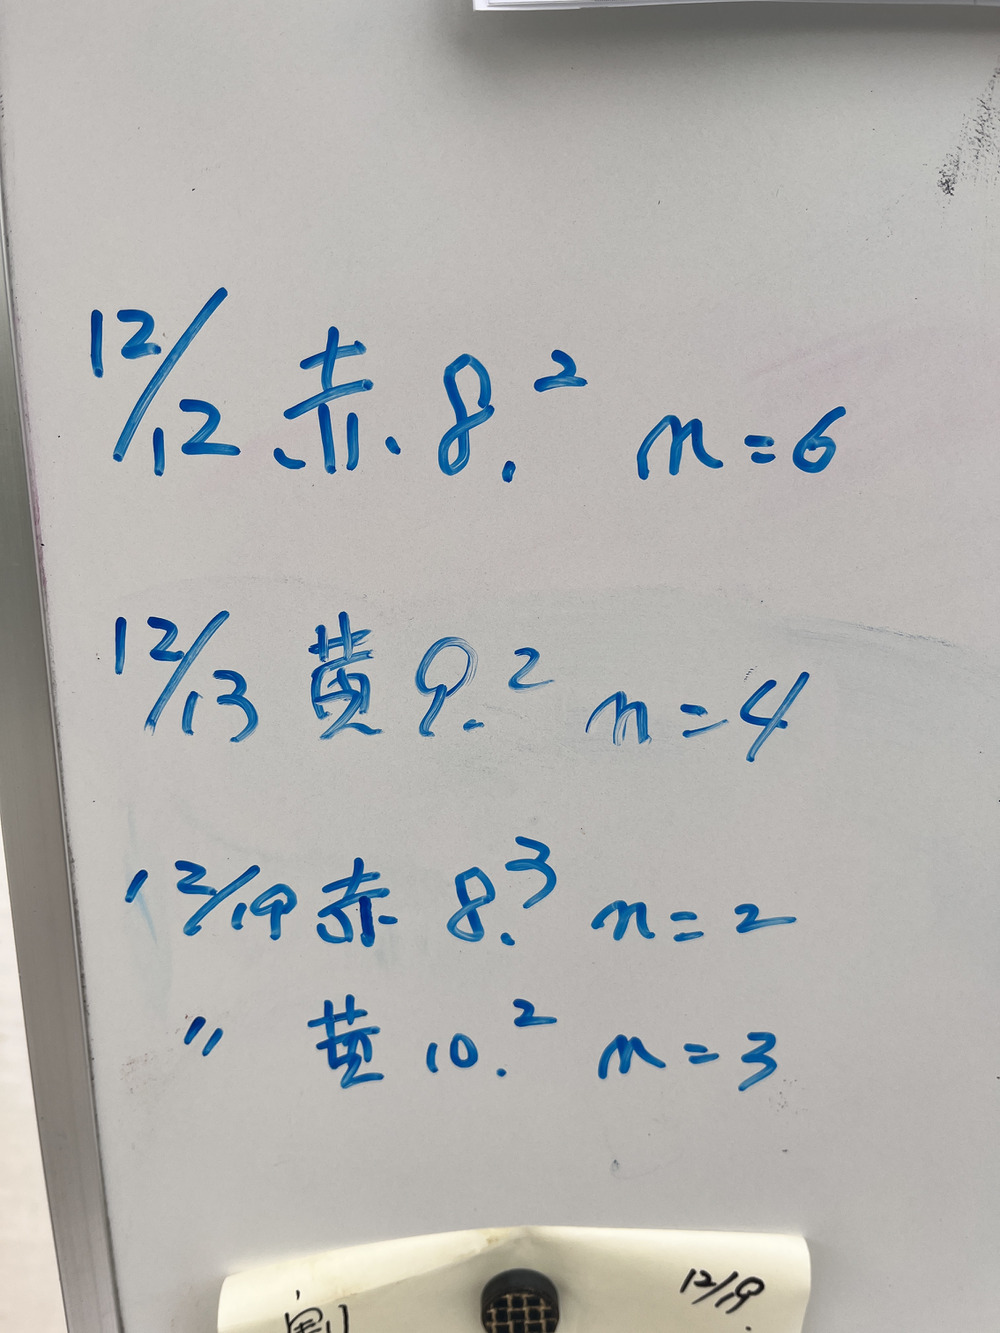 12/12 赤 8.² n=6
12/13 黄 9.² n=4
12/19 赤 8.³ n=2
〃 黄 10.² n=3
12/19